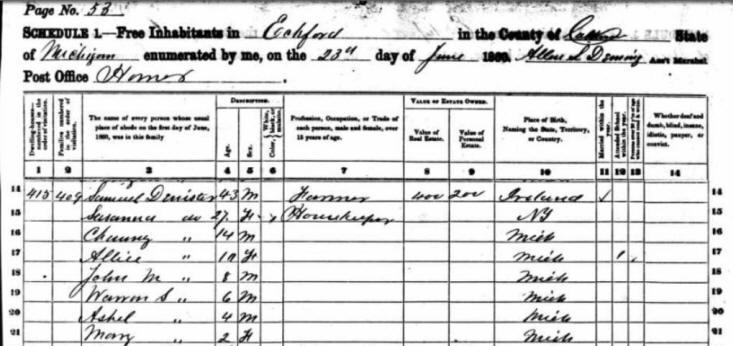 Page No. 53
SCHEDULE 1.—Free Inhabitants in Eckford in the County of State
of Michigan enumerated by me, on the 23d day of June 1860. Allen S Deming Ass't Marshal
Post Office Homer
DESCRIPTION. VALUE OF ESTATE OWNED.
Dwelling-houses— numbered in the order of visitation. Families numbered in the order of visitation. The name of every person whose usual place of abode on the first day of June, 1860, was in this family Age. Sex. Color, White, black, or mulatto. Profession, Occupation, or Trade of each person, male and female, over 15 years of age. Value of Real Estate. Value of Personal Estate. Place of Birth, Naming the State, Territory, or Country. Married within the year. Attended School within the year. Whether deaf and dumb, blind, insane, idiotic, pauper, or convict.
1 2 3 4 5 6 7 8 9 10 11 12 13 14
14 415 409 Samuel Denister 43 M Farmer 400 200 Ireland ✓ 14
15 Susanna do 27 F Housekeeper NY 15
16 Chauncy " 14 M Mich 16
17 Allice " 10 F Mich 1 17
18 John M " 8 M Mich 18
19 Warren S " 6 M Mich 19
20 Ashel " 4 M Mich 20
21 Mary " 2 F Mich 21